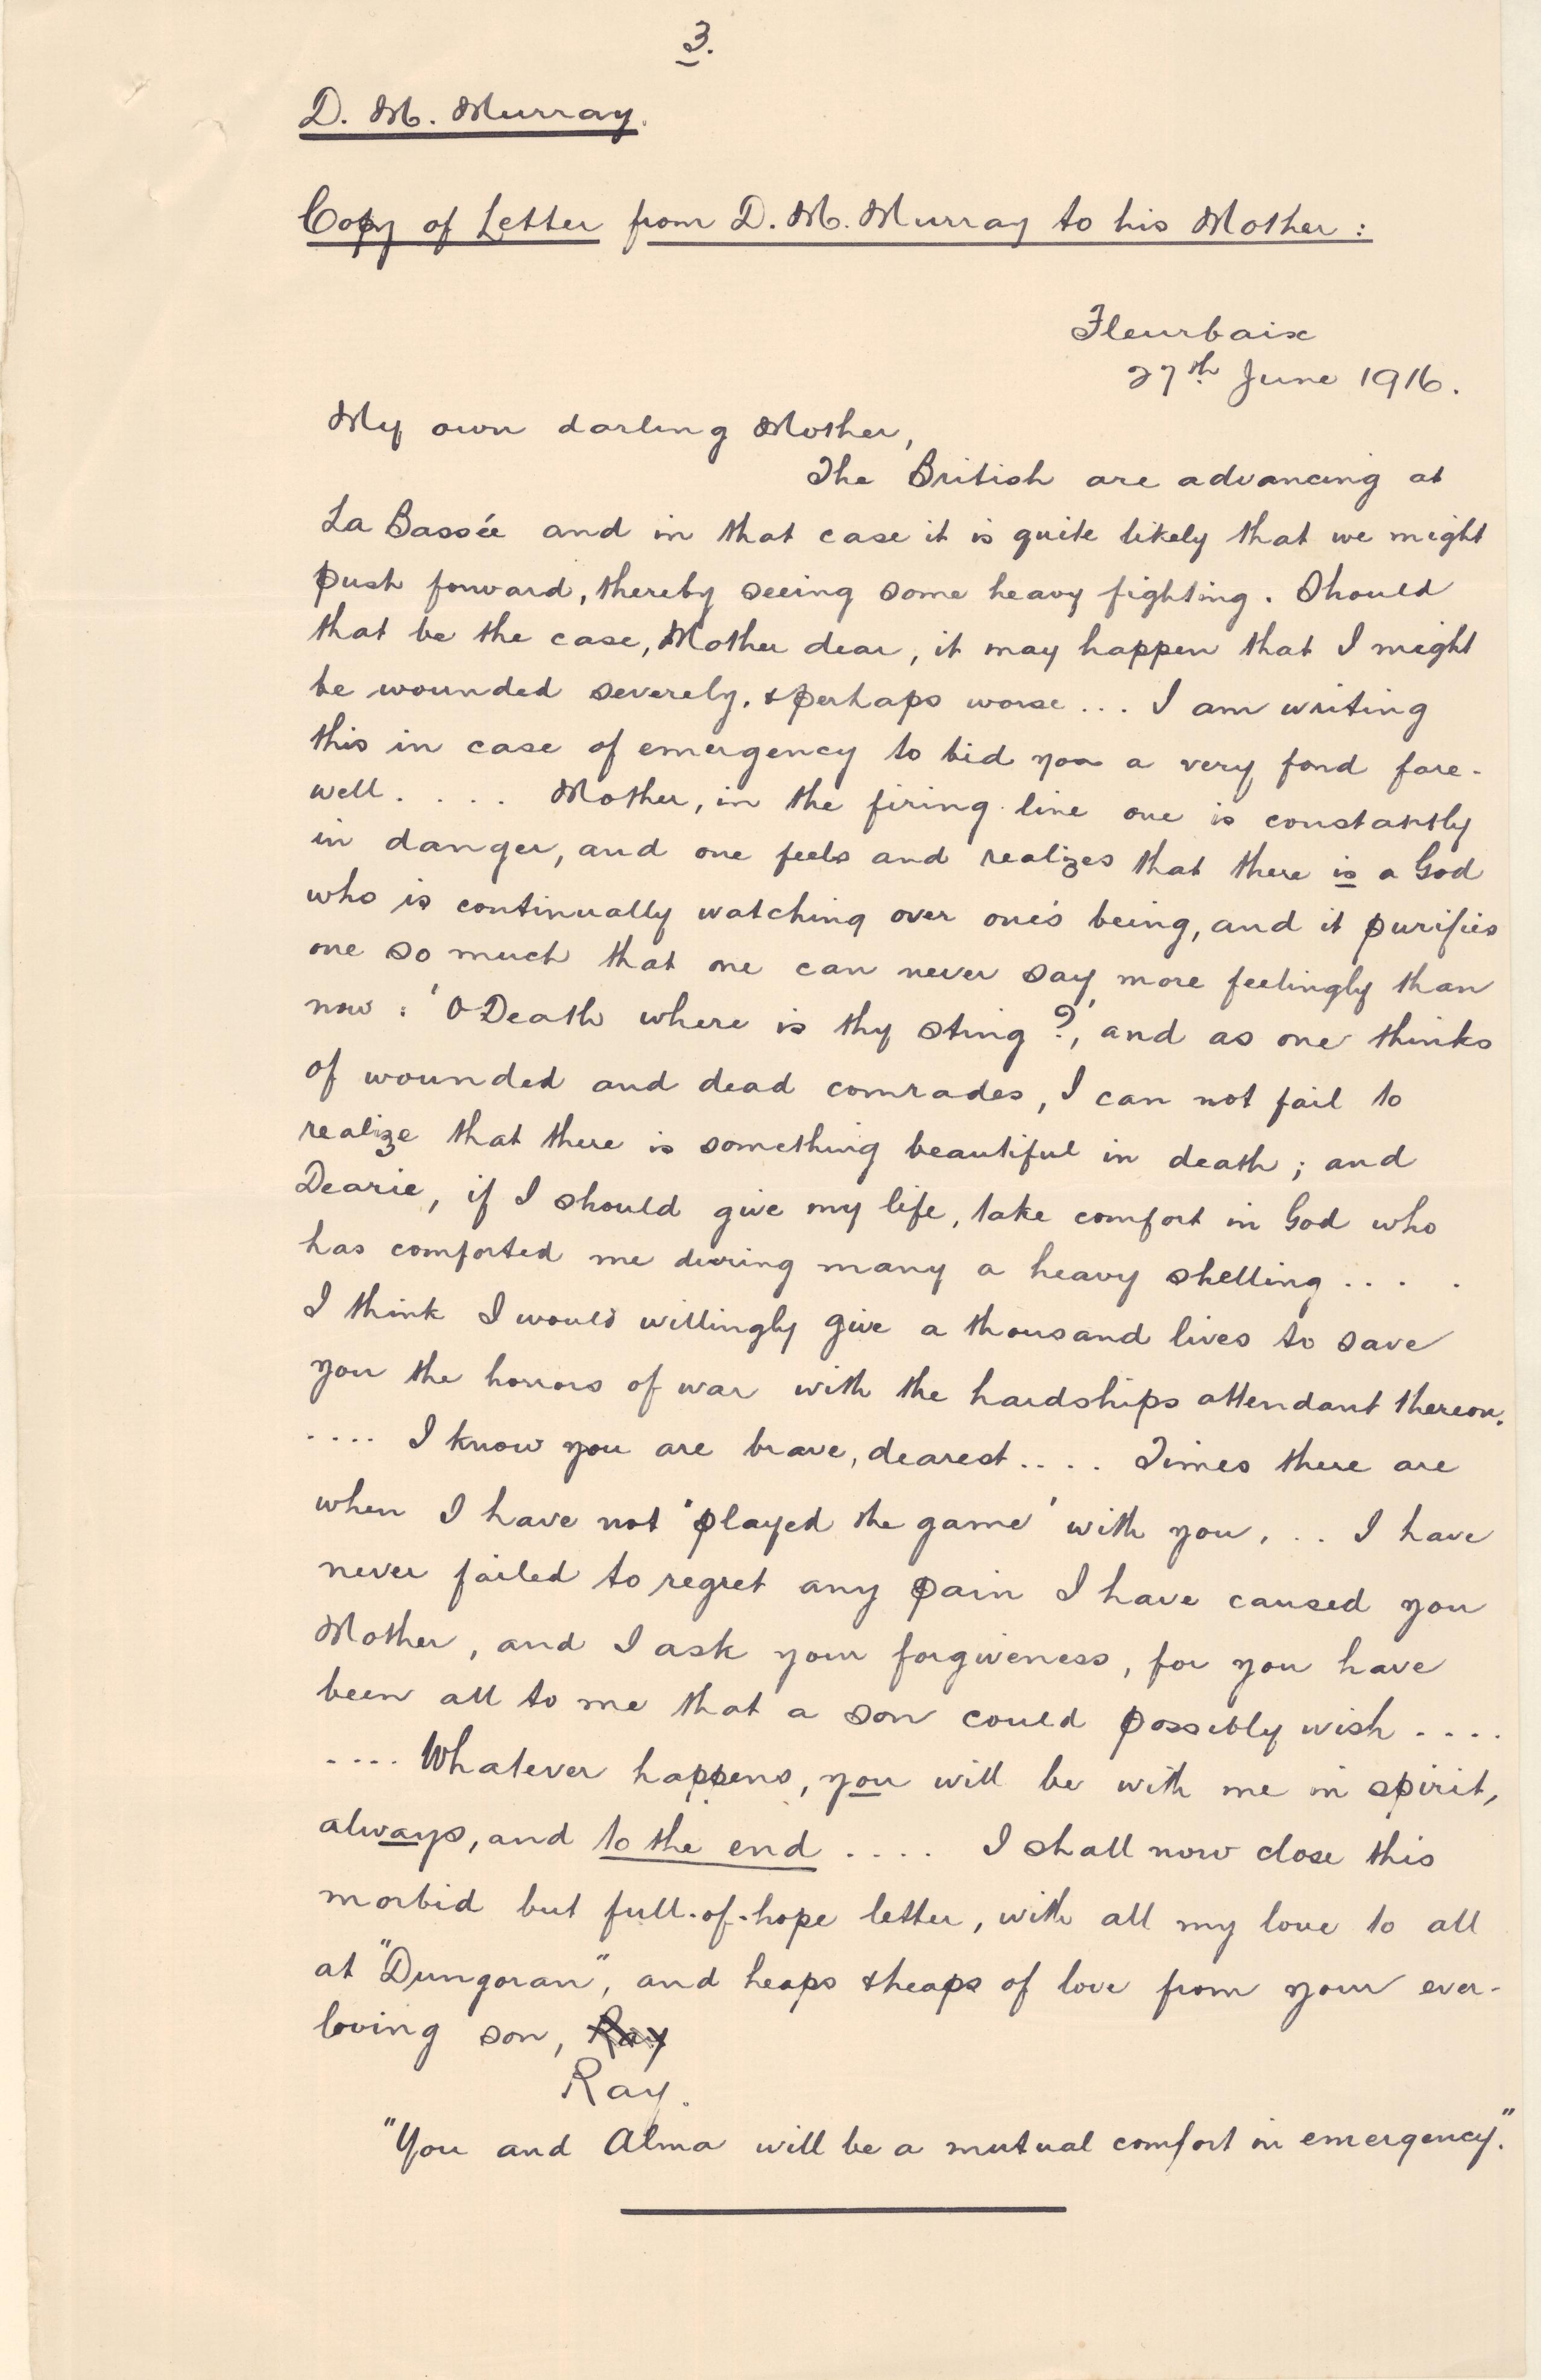 3.
D. M. Murray.
Copy of Letter from D. M. Murray to his Mother :
Fleurbaix
27th June 1916.
My own darling Mother,
The British are advancing at
La Bassée and in that case it is quite likely that we might
push forward, thereby seeing some heavy fighting. Should
that be the case, Mother dear, it may happen that I might
be wounded severely, & perhaps worse ... I am writing
this in case of emergency to bid you a very fond fare-
well. . . . Mother, in the firing line one is constantly
in danger, and one feels and realizes that there is a God
who is continually watching over one's being, and it purifies
one so much that one can never say more feelingly than
now : 'O Death where is thy sting ?', and as one thinks
of wounded and dead comrades, I can not fail to
realize that there is something beautiful in death ; and
Dearie, if I should give my life, take comfort in God who
has comforted me during many a heavy shelling . . . .
I think I would willingly give a thousand lives to save
you the horrors of war with the hardships attendant thereon.
.... I know you are brave, dearest .... Times there are
when I have not 'played the game' with you, .. I have
never failed to regret any pain I have caused you
Mother, and I ask your forgiveness, for you have
been all to me that a son could possibly wish ....
.... Whatever happens, you will be with me in spirit,
always, and to the end .... I shall now close this
morbid but full-of-hope letter, with all my love to all
at "Dungoran", and heaps & heaps of love from your ever-
loving son, Ray
Ray.
"You and Alma will be a mutual comfort in emergency."